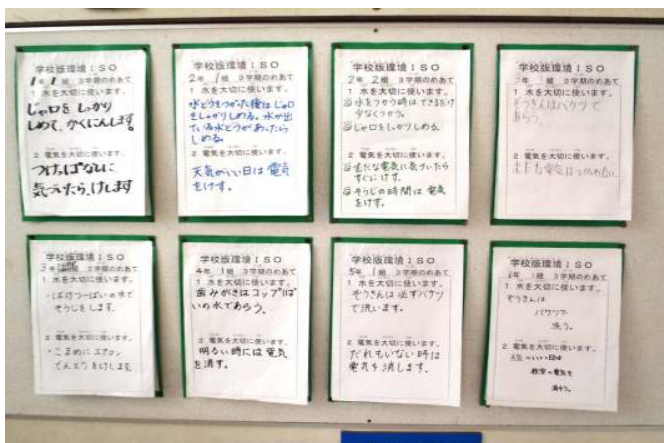 学校版環境ISO
1年 1組 3学期のめあて
1 水を大切に使います。
じゃ口を しっかり
しめて、かくにんします。
2 電気を大切に使います。
つけっぱなしに
気づいたら、けします
学校版環境ISO
2年 1組 3学期のめあて
1 水を大切に使います。
水どうをつかった後は じゃ口
をしっかりしめる。水が出
ている水どうがあったら
しめる。
2 電気を大切に使います。
天気がいい日は 電気
をけす。
学校版環境ISO
2年 2組 3学期のめあて
1 水を大切に使います。
水をつかう時は できるだけ
少なくつかう。
じゃ口をしっかりしめる。
2 電気を大切に使います。
むだな電気に気づいたら
すぐにけす。
そうじの時間は 電気
をけす。
学校版環境ISO
組 3学期のめあて
1 水を大切に使います。
ぞうきんはバケツで
あらう。
2 電気を大切に使います。
むだな電気はつかわない
学校版環境ISO
3年 組 3学期のめあて
1 水を大切に使います。
・ばけつ一ぱいの水で
そうじをします。
2 電気を大切に使います。
・こまめに エアコン
でんとうをけします。
学校版環境ISO
4年 1組 3学期のめあて
1 水を大切に使います。
歯みがきはコップ1ぱ
いの水であらう。
2 電気を大切に使います。
明るい時には 電気
を消す。
学校版環境ISO
5年 1組 3学期のめあて
1 水を大切に使います。
ぞうきんは必ずバケツ
で洗います。
2 電気を大切に使います。
だれもいない時は
電気を消します。
学校版環境ISO
6年 1組 3学期のめあて
1 水を大切に使います。
ぞうきんは
バケツで
洗う。
2 電気を大切に使います。
天気のいい日は
教室の電気を
消そう。